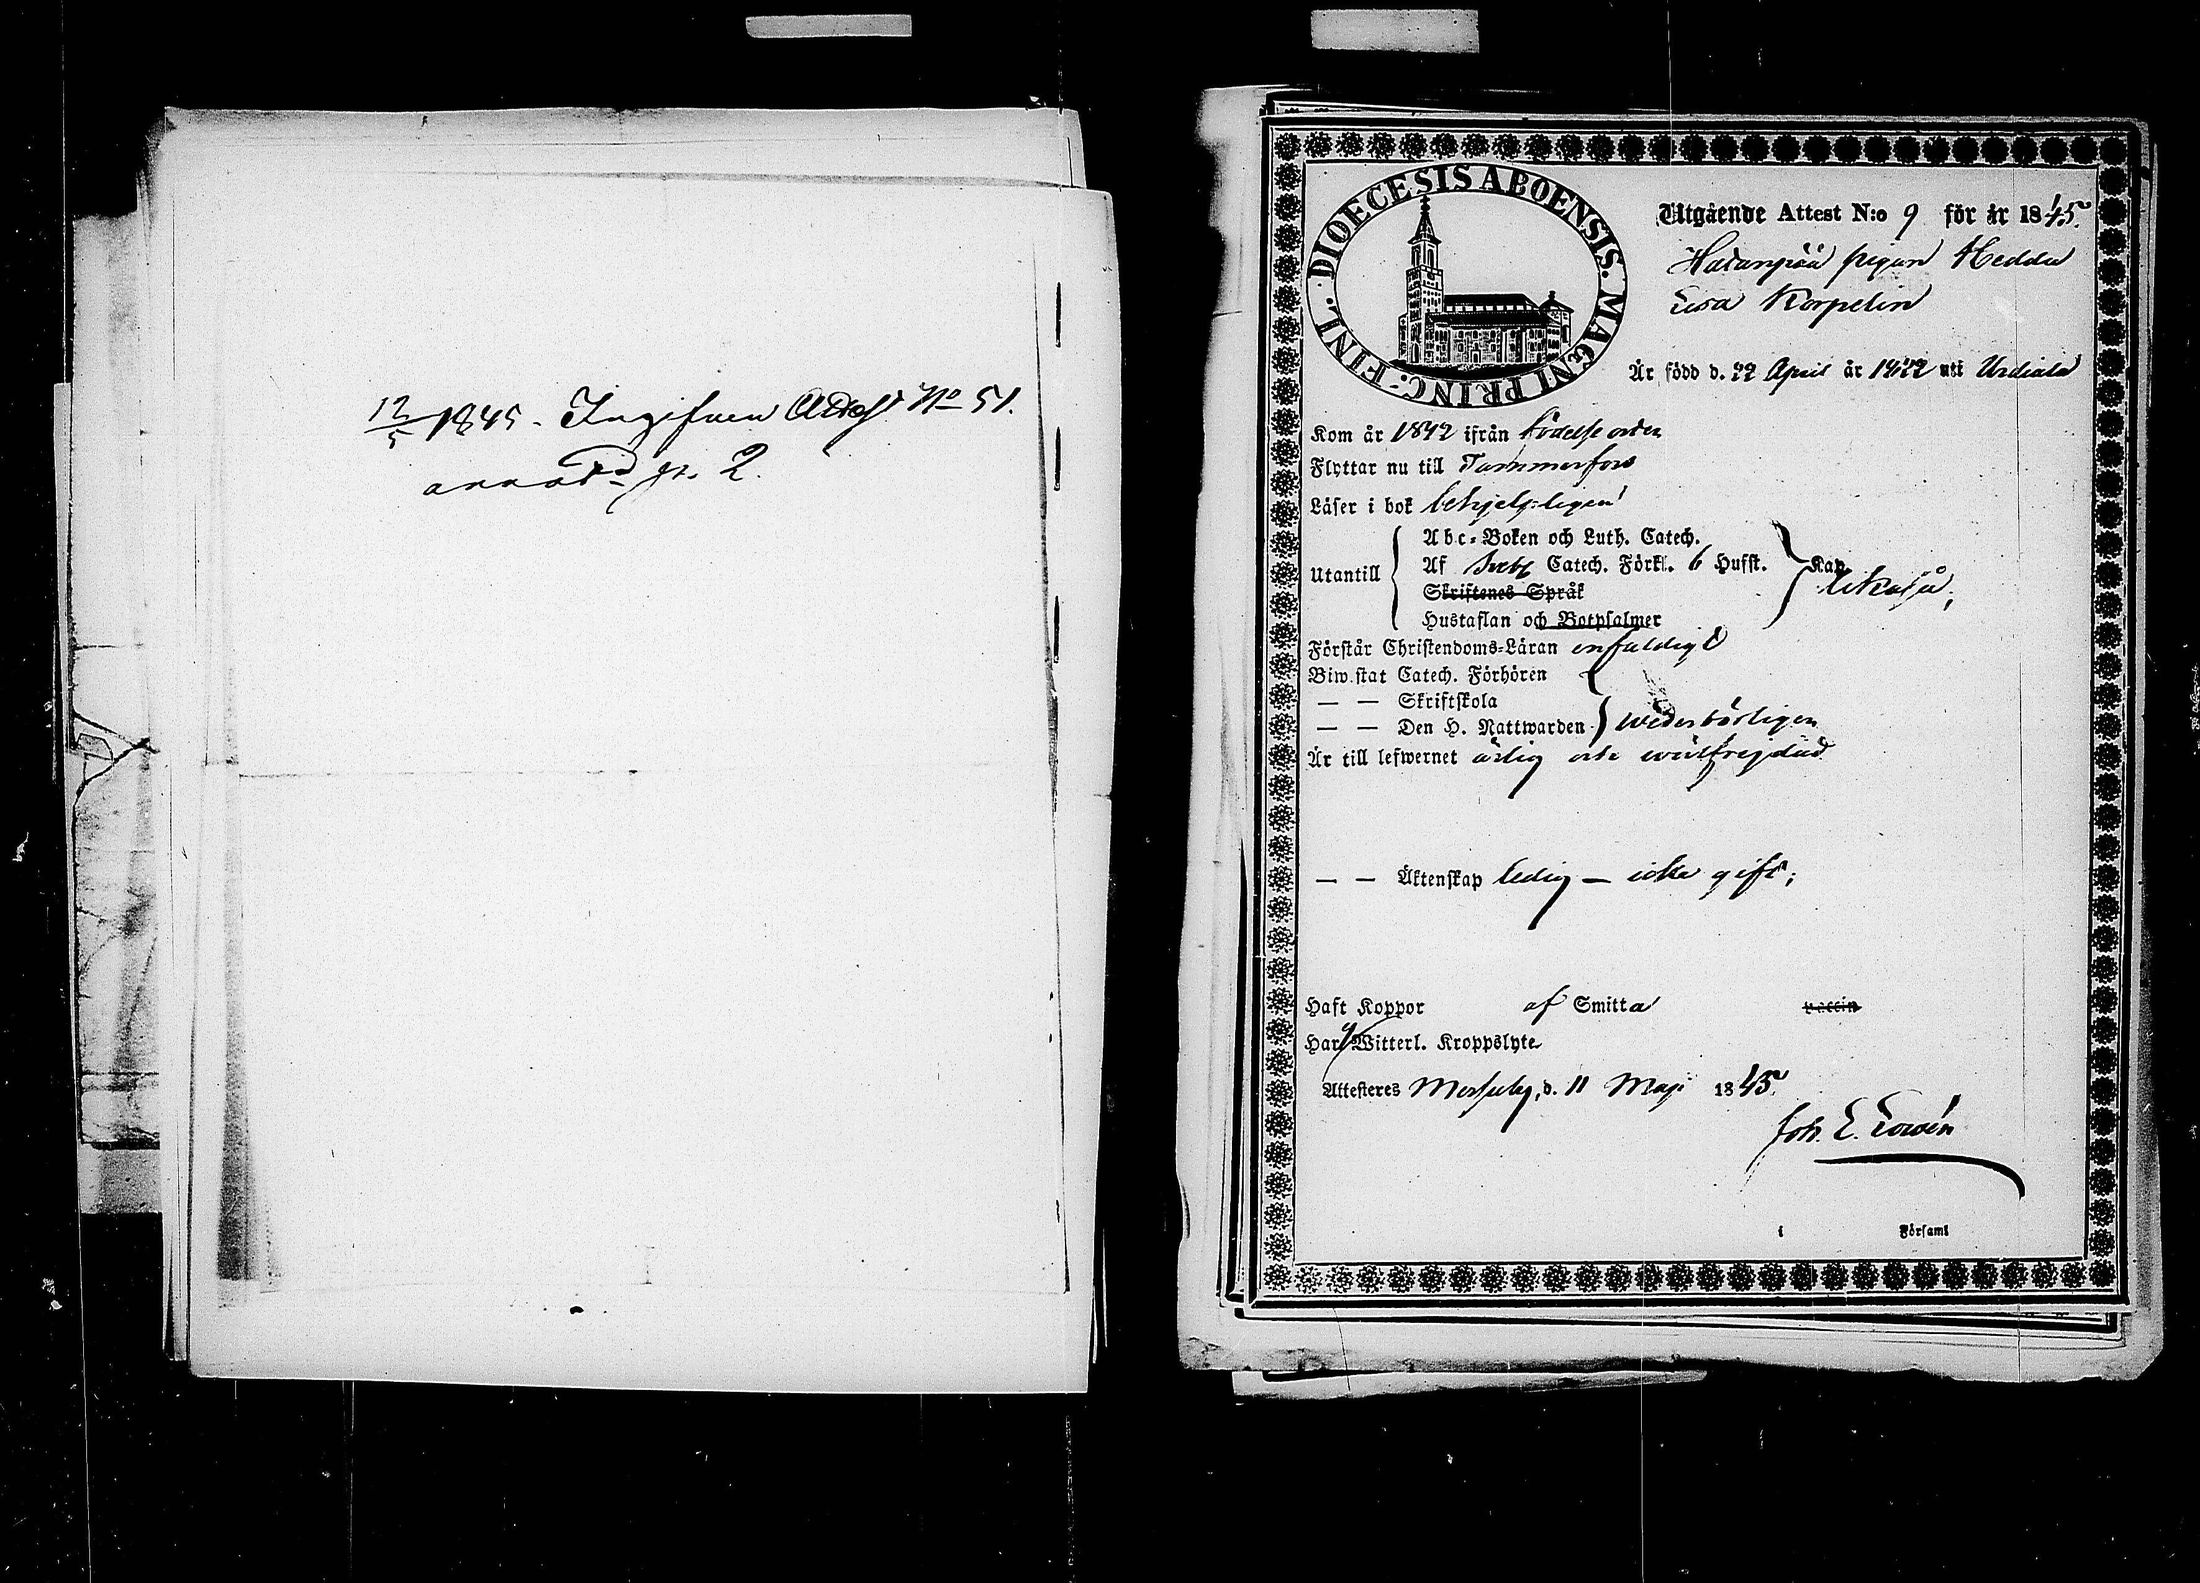 12/5 1845. Ingifven Attest No 51.
annot. p. 2.
DIOECESIS ABOENSIS. MAGNI PRINC. FINL.
Utgående Attest N:o 9 för år 1845.
Hatanpää pigan Hedda
Lisa Korpelin
Är född d. 22 April år 1822 uti Urdiala
Kom år 1842 ifrån födelse orten
Flyttar nu till Tammerfors
Läser i bok behjelpligen
Utantill
Abc-Boken och Luth. Catech.
Af Sveb. Catech. Förkl. 6 Hufst. Kap
Skriftenes Språk
likaså,
Hustaflan och Botpsalmer
Förstår Christendoms-Läran enfaldigt
Biw.stat Catech. Förhören
— — Skriftskola
— — Den H. Nattwarden wederbörligen
Är till lefwernet ärlig och wälfrejdad
— — Äktenskap ledig — icke gift;
Haft Koppor af Smitta vaccin
Har Witterl. Kroppslyte
Attesteres Messuby, d. 11 Maji 1845.
Joh. E.
i Församl